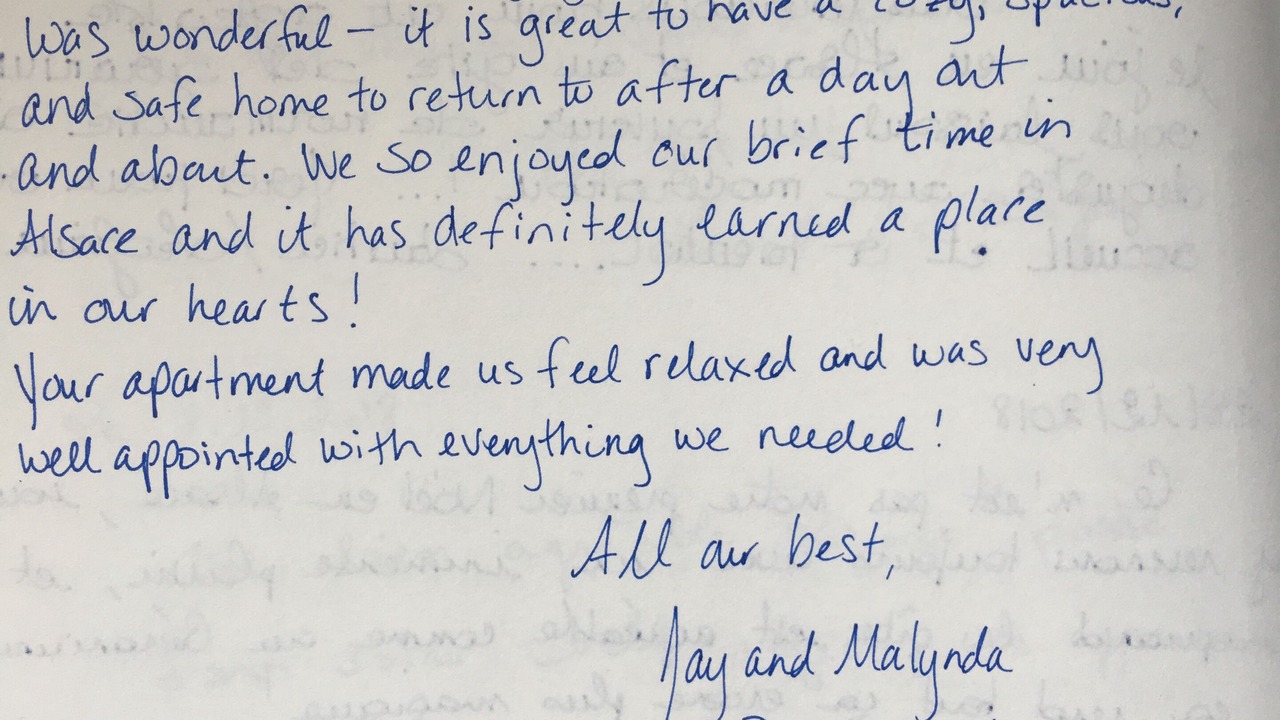 was wonderful – it is great to have a cozy, spacious,
and safe home to return to after a day out
and about. We so enjoyed our brief time in
Alsace and it has definitely earned a place
in our hearts!
Your apartment made us feel relaxed and was very
well appointed with everything we needed!
All our best,
Jay and Malynda